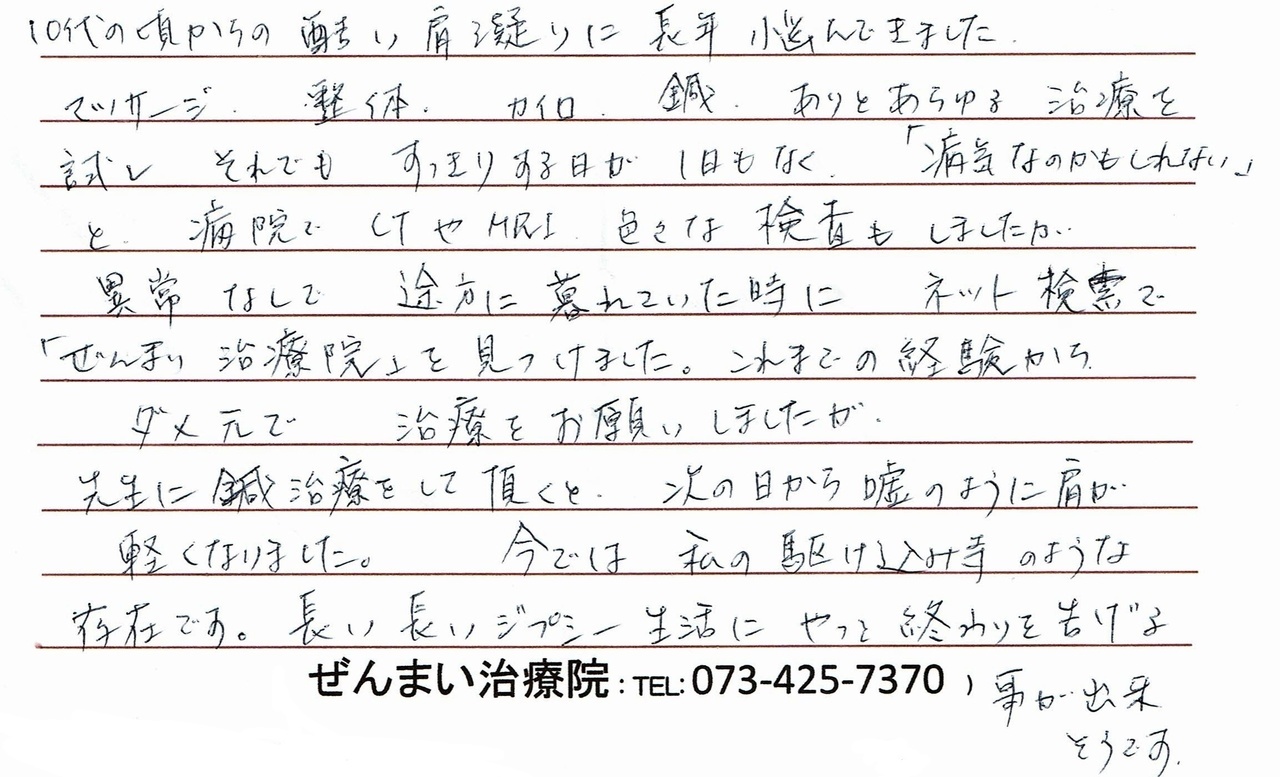 10代の頃からの 酷い 肩凝りに 長年 悩んできました.
マッサージ. 整体. カイロ. 鍼. ありとあらゆる 治療を
試し それでも すっきりする日が 1日もなく. 「病気なのかもしれない」
と. 病院で CTやMRI. 色々な 検査も しましたが..
異常 なしで 途方に 暮れていた時に ネット検索で
「ぜんまい 治療院」を 見つけました。これまでの 経験から
ダメ元で 治療を お願い しましたが.
先生に 鍼治療をして 頂くと. 次の日から 嘘のように 肩が
軽くなりました。 今では 私の 駆け込み寺 のような
存在です。長い 長い ジプシー 生活に やっと 終わりを 告げる
ぜんまい治療院:TEL:073-425-7370
事が 出来
そうです.